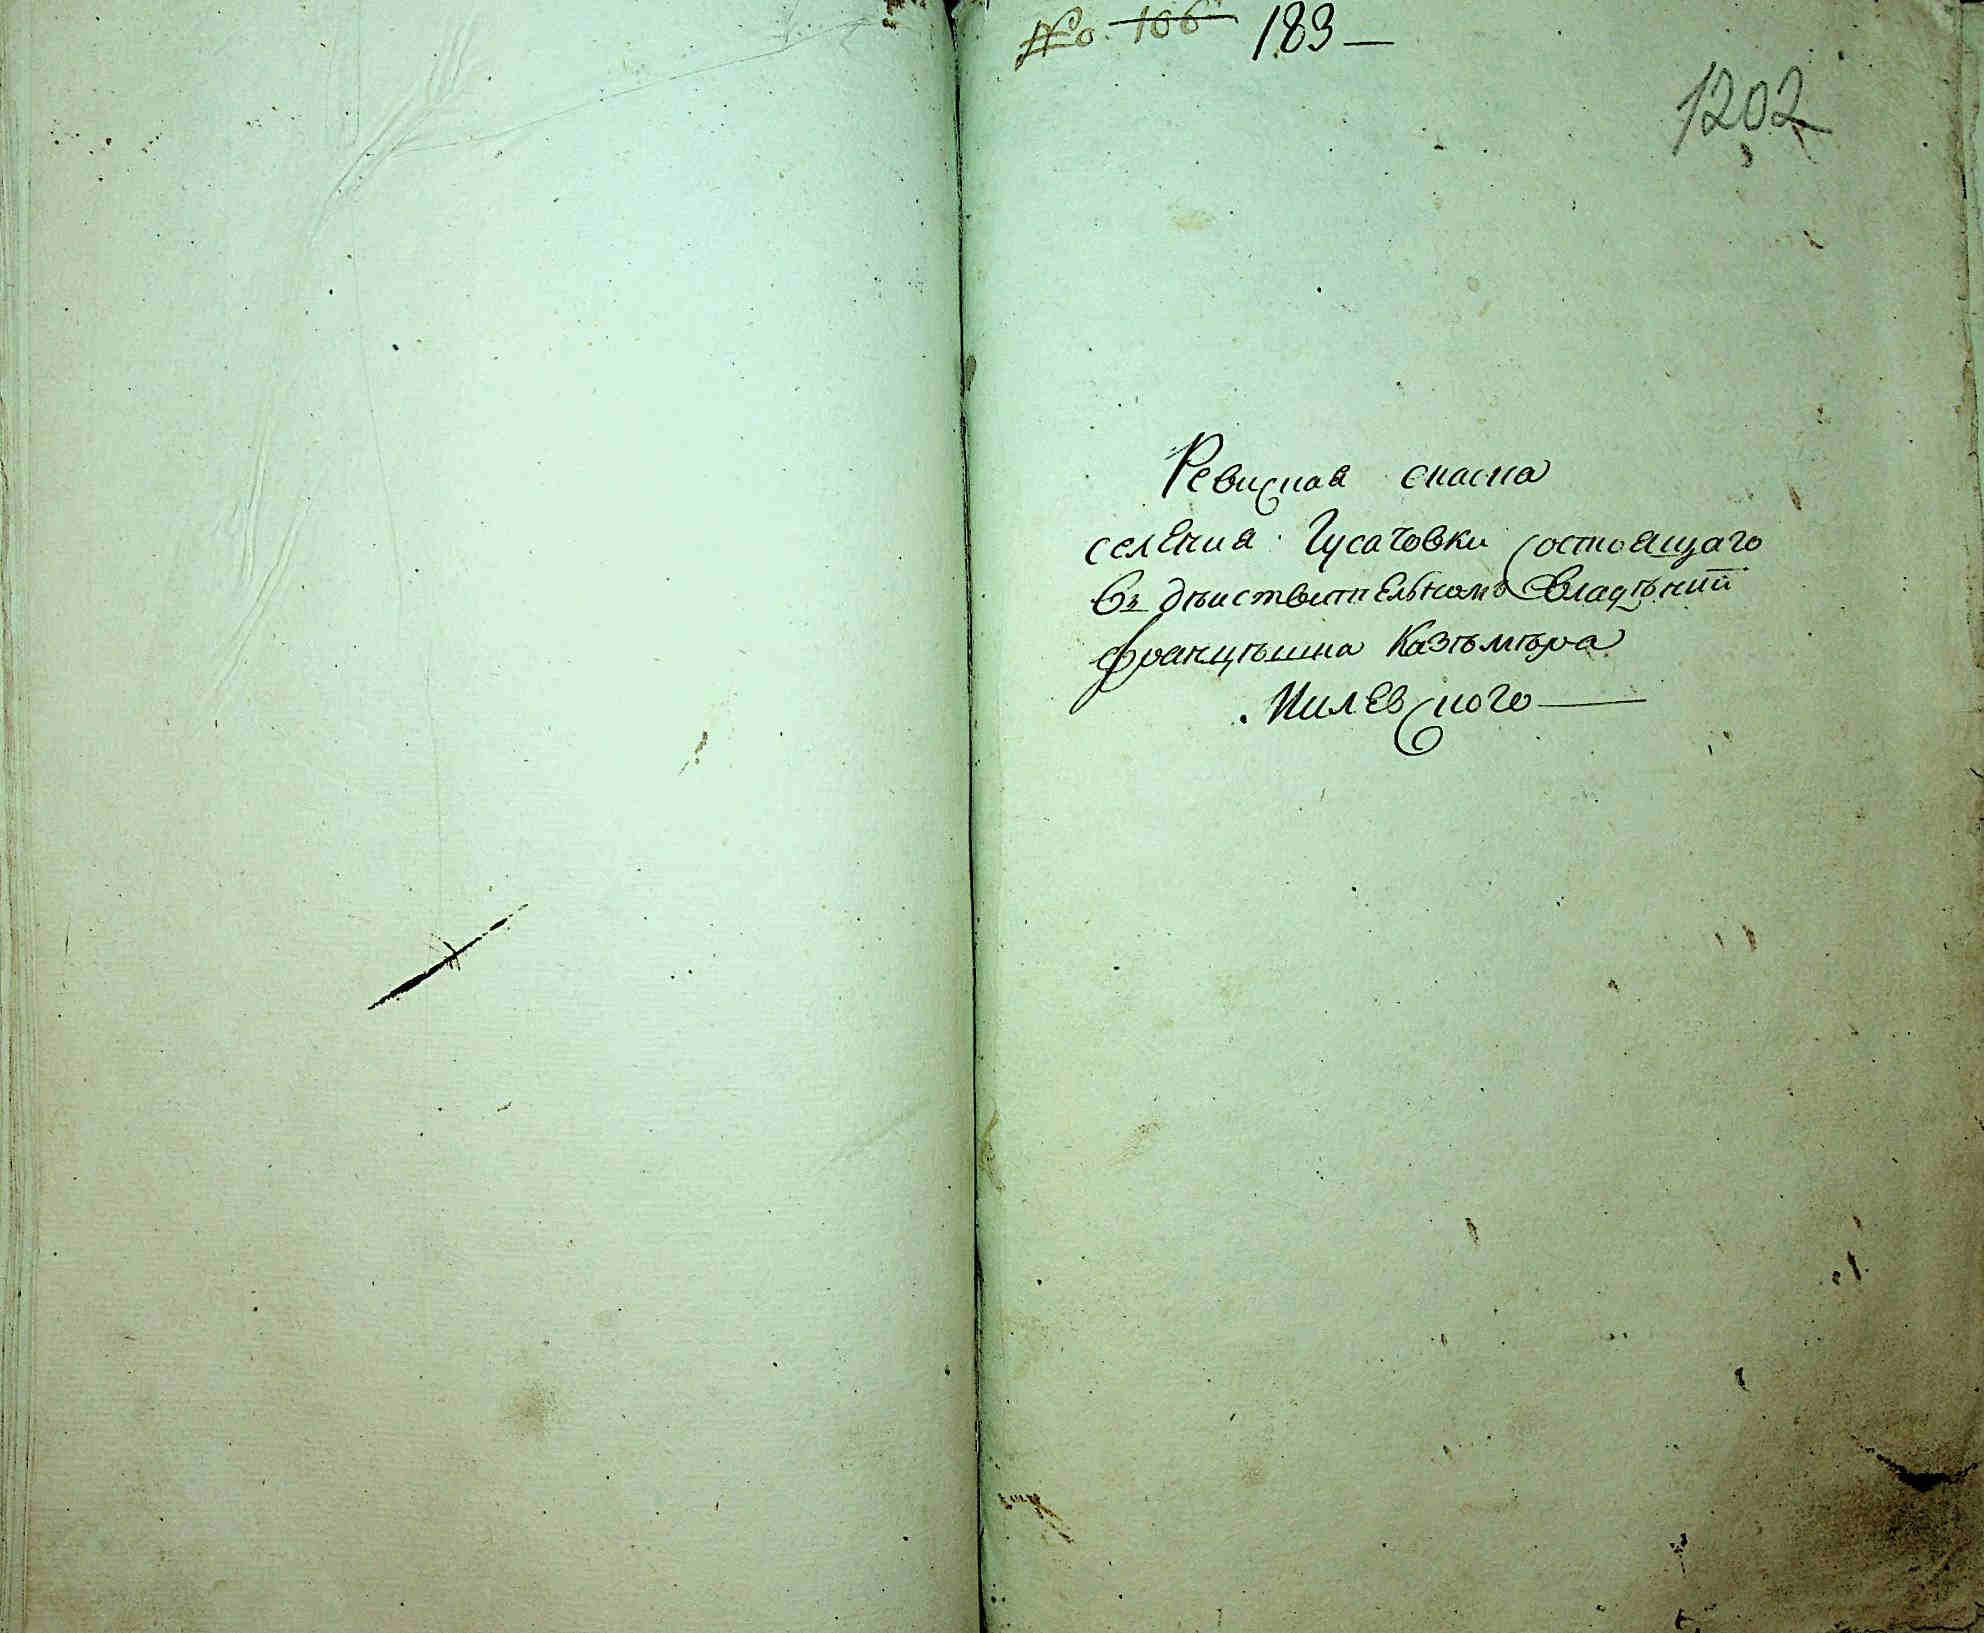 No 106 183
1202
Ревиская скаска
селения Гусаговки состоящаго
въ дѣиствительномъ владѣнии
францѣшка Казѣмѣра
Милевского